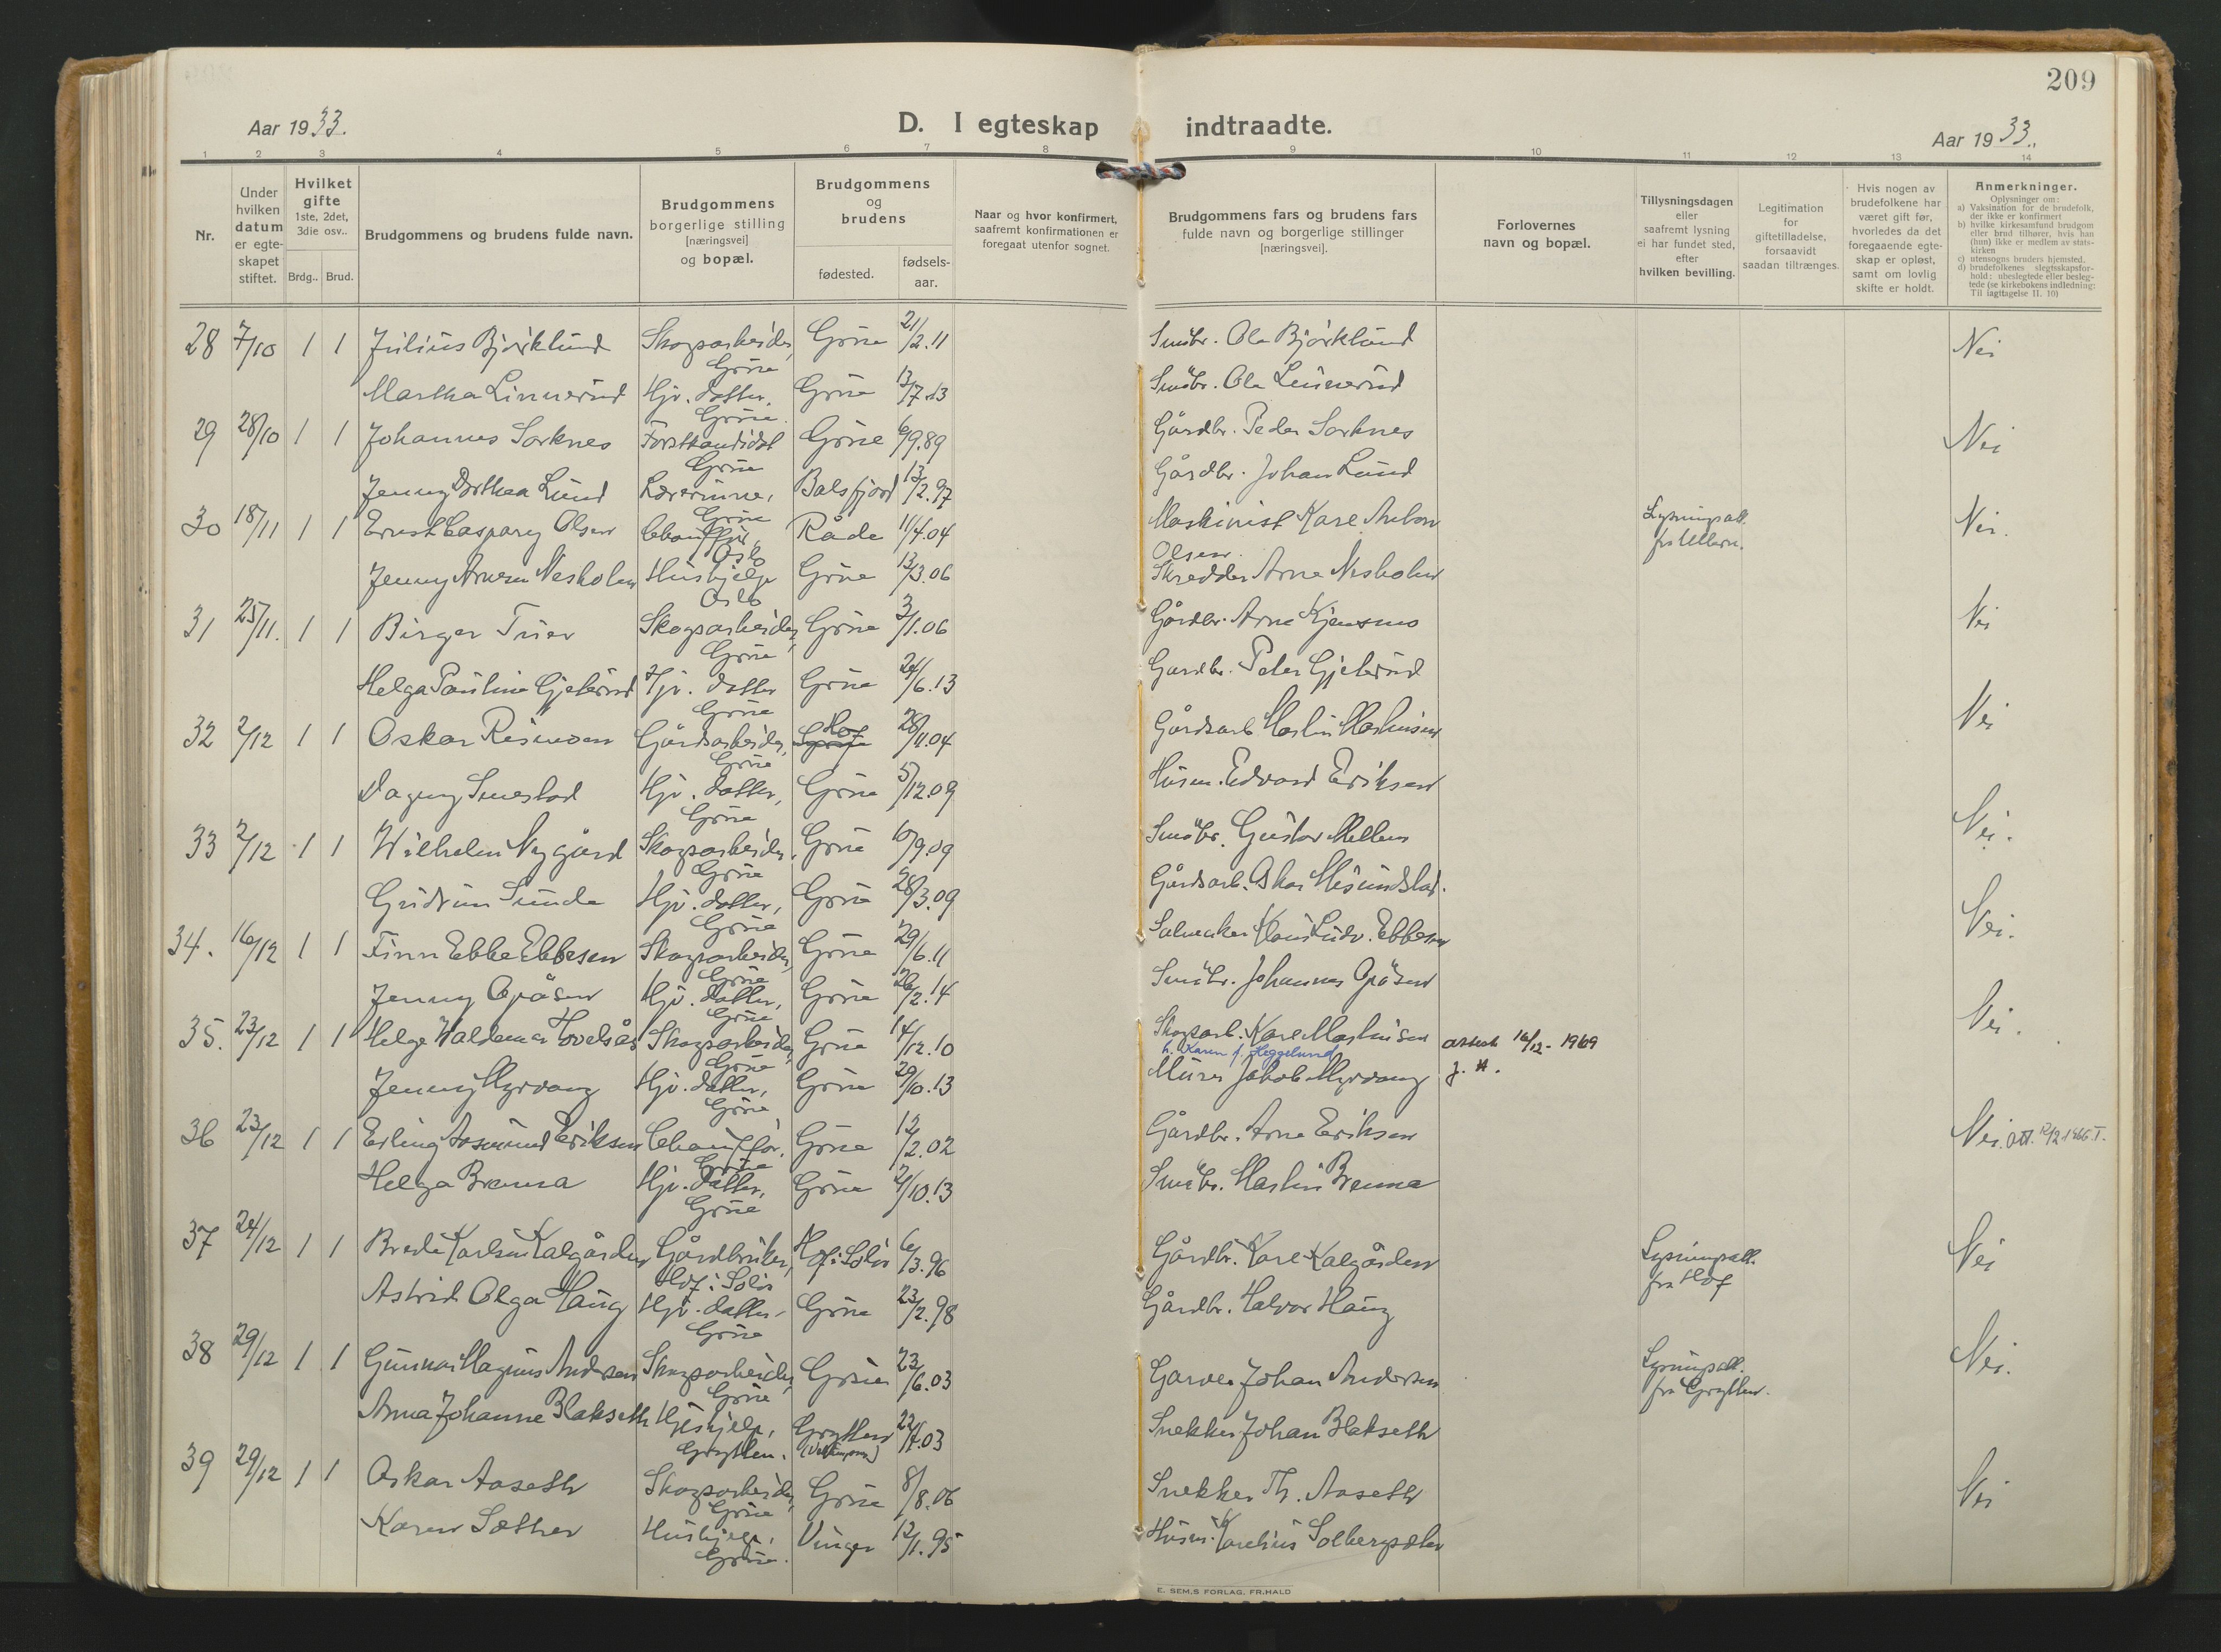 209
Aar 1933.
D. I egteskap indtraadte.
Aar 1933.
1 2 3 4 5 6 7 8 9 10 11 12 13 14
Nr.
Under hvilken datum er egte-skapet stiftet.
Hvilket gifte 1ste, 2det, 3die osv..
Brdg.. Brud.
Brudgommens og brudens fulde navn.
Brudgommens borgerlige stilling [næringsvei] og bopæl.
Brudgommens og brudens
fødested.
fødsels-aar.
Naar og hvor konfirmert, saafremt konfirmationen er foregaat utenfor sognet.
Brudgommens fars og brudens fars fulde navn og borgerlige stillinger [næringsvei].
Forlovernes navn og bopæl.
Tillysningsdagen eller saafremt lysning ei har fundet sted, efter hvilken bevilling.
Legitimation for giftetilladelse, forsaavidt saadan tiltrænges.
Hvis nogen av brudefolkene har været gift før, hvorledes da det foregaaende egte-skap er opløst, samt om lovlig skifte er holdt.
Anmerkninger.
Oplysninger om:
a) Vaksination for de brudefolk, der ikke er konfirmert
b) hvilke kirkesamfund brudgom eller brud tilhører, hvis han (hun) ikke er medlem av stats-kirken
c) utensogns bruders hjemsted.
d) brudefolkenes slegtsskapsfor-hold: ubeslegtede eller besleg-tede (se kirkebokens indledning: Til iagttagelse II. 10)
28 7/10 1 1 Julius Bjørklund Skogsarbeider, Grue Grue 21/2.11 Småbr. Ola Bjørklund Nei
Martha Linnerud Hjv. datter, Grue Grue 13/7.13 Småbr. Ola Linnerud
29 28/10 1 1 Johannes Sorknes Forstkandidat Grue Grue 6/9.89 Gårdbr. Peder Sorknes Nei
Jenny Dorthea Lund Lærerinne, Grue Balsfjord 13/2.97 Gårdbr. Johan Lund
30 18/11 1 1 Ernst Caspary Olsen Chauffør, Oslo Råde 11/4.04 Maskinist Karl Anton Olsen Lysningsatt. fra Ullern. Nei.
Jenny Arnesen Nesholen Hushjelp Oslo Grue 13/3.06 Skredder Arne Nesholen
31 25/11. 1 1 Birger Tuer Skogsarbeider, Grue Grue 3/1.06 Gårdbr. Arne Kjensmo Nei
Helga Pauline Gjeterud Hjv. datter Grue Grue 24/6.13 Gardbr. Peter Gjeterud
32 2/12 1 1 Oskar Rismoen Gårdsarbeider, Grue Hof 28/11.04 Gårdsarb. Martin Martinsen Nei
Dagny Smestad Hjv. datter, Grue Grue 5/12.09 Husm. Edvard Eriksen
33 2/12 1 1 Wilhelm Nygård Skogsarbeider, Grue Grue 10/9.09 Småbr. Gustav Mellem Nei.
Gudrun Sunde Hjv. datter, Grue Grue 28/3.09 Gårdsarb. Oskar
34. 16/12 1 1 Finn Ebbe Ebbesen Skogsarbeider, Grue Grue 29/6.11 Salmaker Hans Ludv. Ebbesen Nei.
Jenny Opåsen Hjv. datter, Grue Grue 26/2.14 Småbr. Johannes Opåsen
35. 23/12 1 1 Helge Waldemar Hovelsås Skogsarbeider, Grue Grue 14/12.10 Skogsarb. Karl Martinsen attest 16/12-1969 J. H. Nei.
h. Karen f. Heggelund
Jenny Myrvang Hjv. datter, Grue Grue 29/10.13 Murer Jakob Myrvang
36 23/12 1 1 Erling Aasmund Eriksen Chauffør, Grue Grue 12/2.02 Gårdbr. Arne Eriksen Nei. att. 12/2 1966 T.
Helga Brenna Hjv. datter, Grue Grue 2/10.13 Småbr. Martin Brenna
37 24/12 1 1 Brede Karlsen Kalgården Gårdbruker, Hof i Solør Hof i Solør 6/3.96 Gårdbr. Karl Kalgården Lysningsatt. fra Hof Nei
Astrid Olga Haug Hjv. datter Grue Grue 23/2.98 Gårdbr. Halvor Haug
38 29/12 1 1 Gunnar Magnus Andersen Skogsarbeider, Grue Grue 23/6.03 Garver Johan Andersen Lysningsatt. fra Grytten. Nei.
Anna Johanne Blakseth Hushjelp, Grytten. Grytten 22/4.03 Snekker Johan Blakseth
39 29/12 1 1 Oskar Aaseth Skogsarbeider, Grue Grue 8/8.06 Snekker Th. Aaseth Nei
Karen Sæther Hushjelp, Grue. Vinger 12/1.95 Husm. Karelius Solbergsæter
E. SEM,S FORLAG, FR.HALD